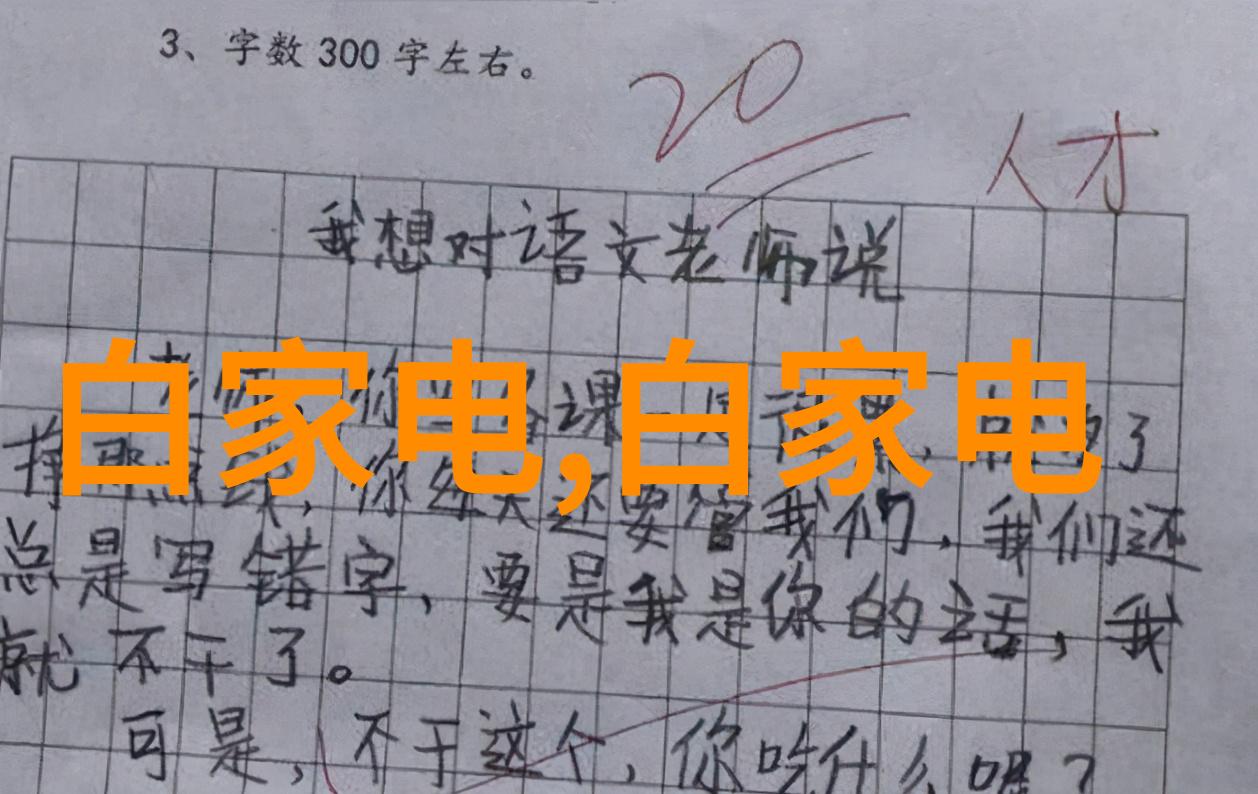 3、字数300字左右。
20
人才
我想对语文老师说
白家电,白家电
老师,你 课 了
你 还要管我们,我们还
总是写错字,要是我是你的话,我
就不干了。
可是,不干这个,你吃什么呢?